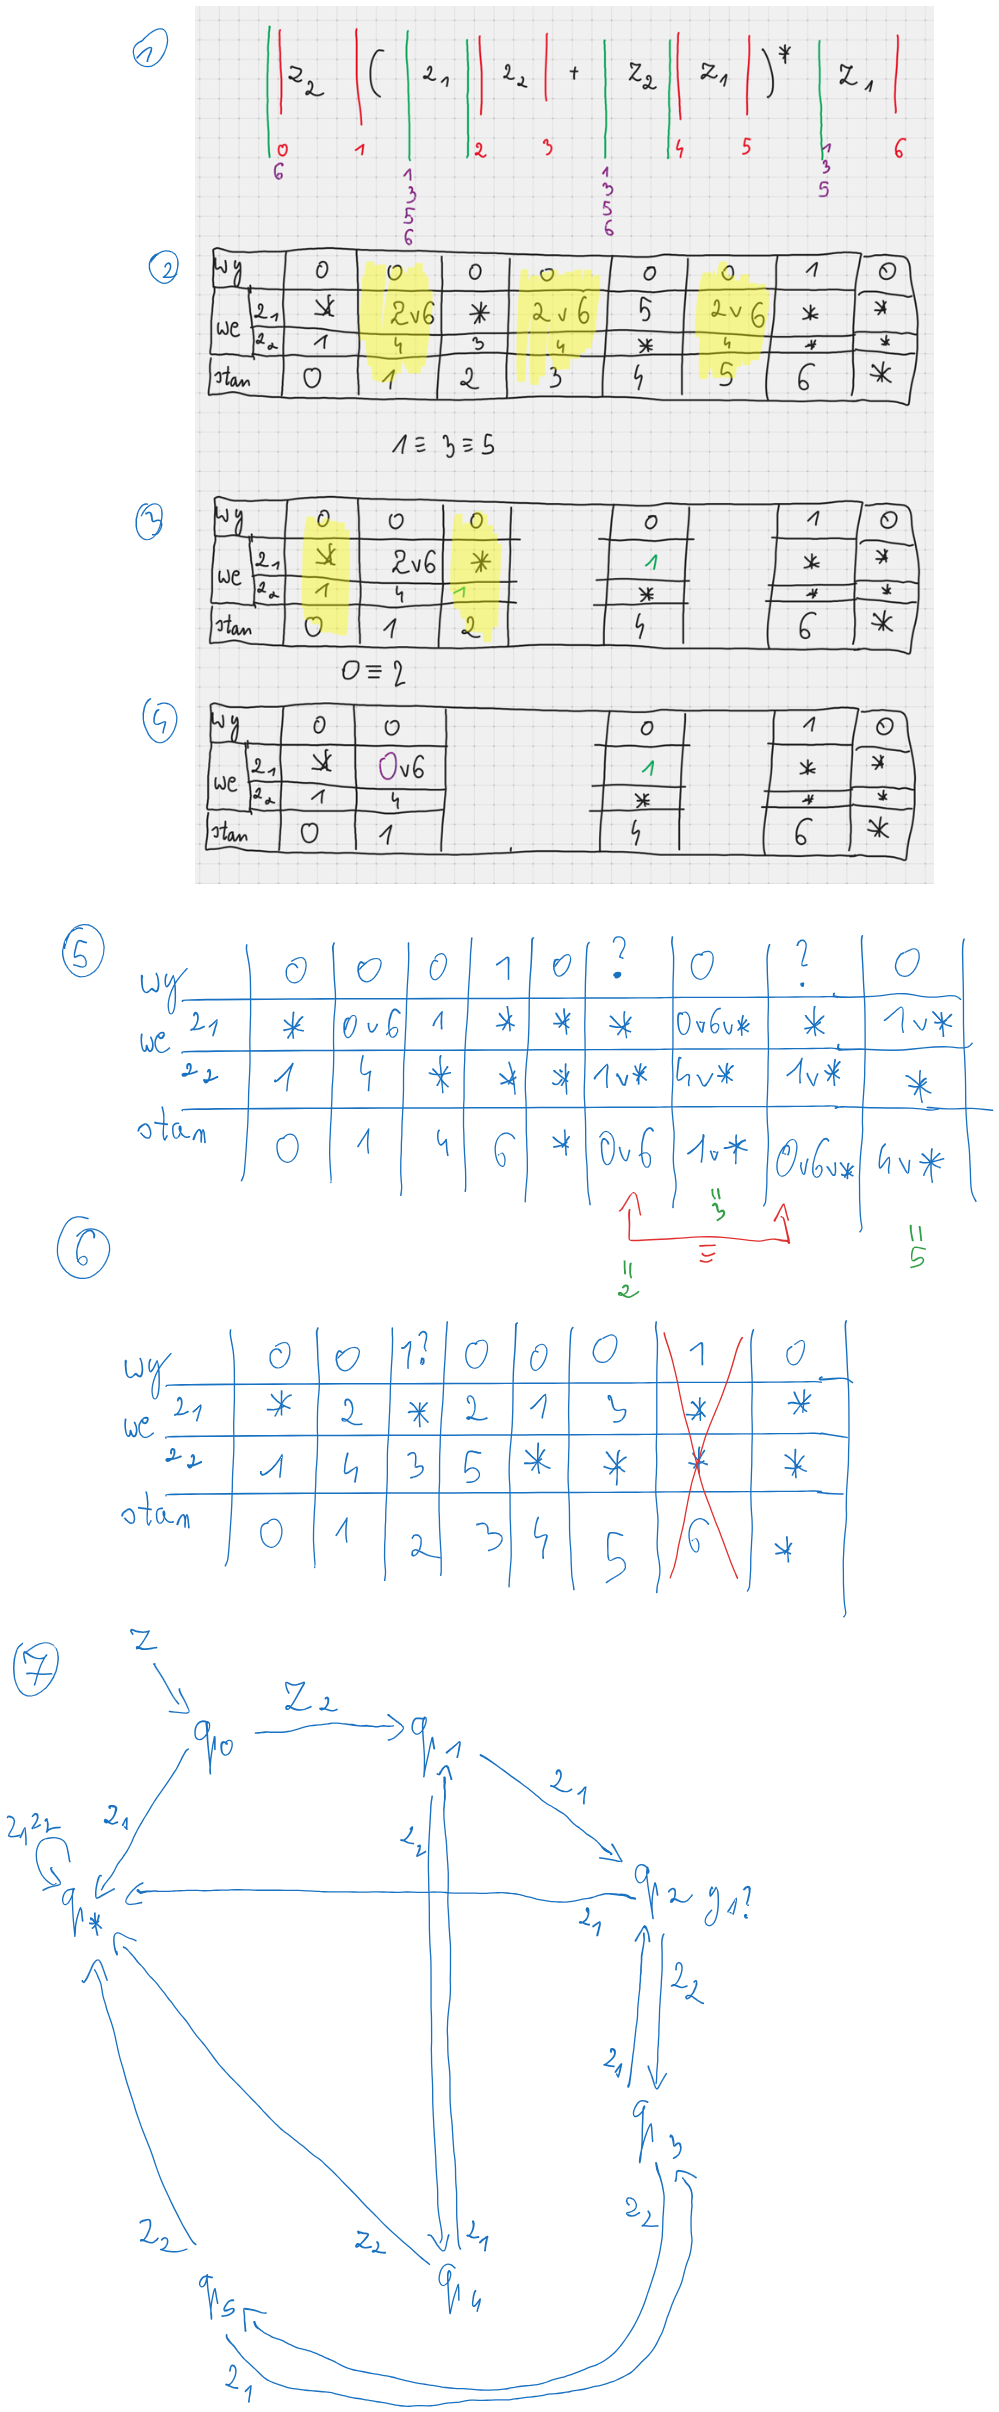 1
z₂ ( z₁ z₂ + z₂ z₁ )* z₁
0 1 2 3 4 5 6
6 1 1 1
3 3 3
5 5 5
6 6
2
wy 0 0 0 0 0 0 1 0
we z₁ * 2v6 * 2v6 5 2v6 * *
z₂ 1 4 3 4 * 4 * *
stan 0 1 2 3 4 5 6 *
1 ≡ 3 ≡ 5
3
wy 0 0 0 0 1 0
we z₁ * 2v6 * 1 * *
z₂ 1 4 1 * * *
stan 0 1 2 4 6 *
0 ≡ 2
4
wy 0 0 0 1 0
we z₁ * 0v6 1 * *
z₂ 1 4 * * *
stan 0 1 4 6 *
5
wy 0 0 0 1 0 ? 0 ? 0
we z₁ * 0v6 1 * * * 0v6v* * 1v*
z₂ 1 4 * * * 1v* 4v* 1v* *
stan 0 1 4 6 * 0v6 1v* 0v6v* 4v*
= 3
≡
= 5
= 2
6
wy 0 0 1? 0 0 0 1 0
we z₁ * 2 * 2 1 3 * *
z₂ 1 4 3 5 * * * *
stan 0 1 2 3 4 5 6 *
7
Z
q₀ Z₂ q₁
z₁
z₁
z₁z₂
z₂
q*
q₂ y₁?
z₁
z₂
z₁
q₃
z₂
z₂ z₂ z₁
q₅ q₄
z₁